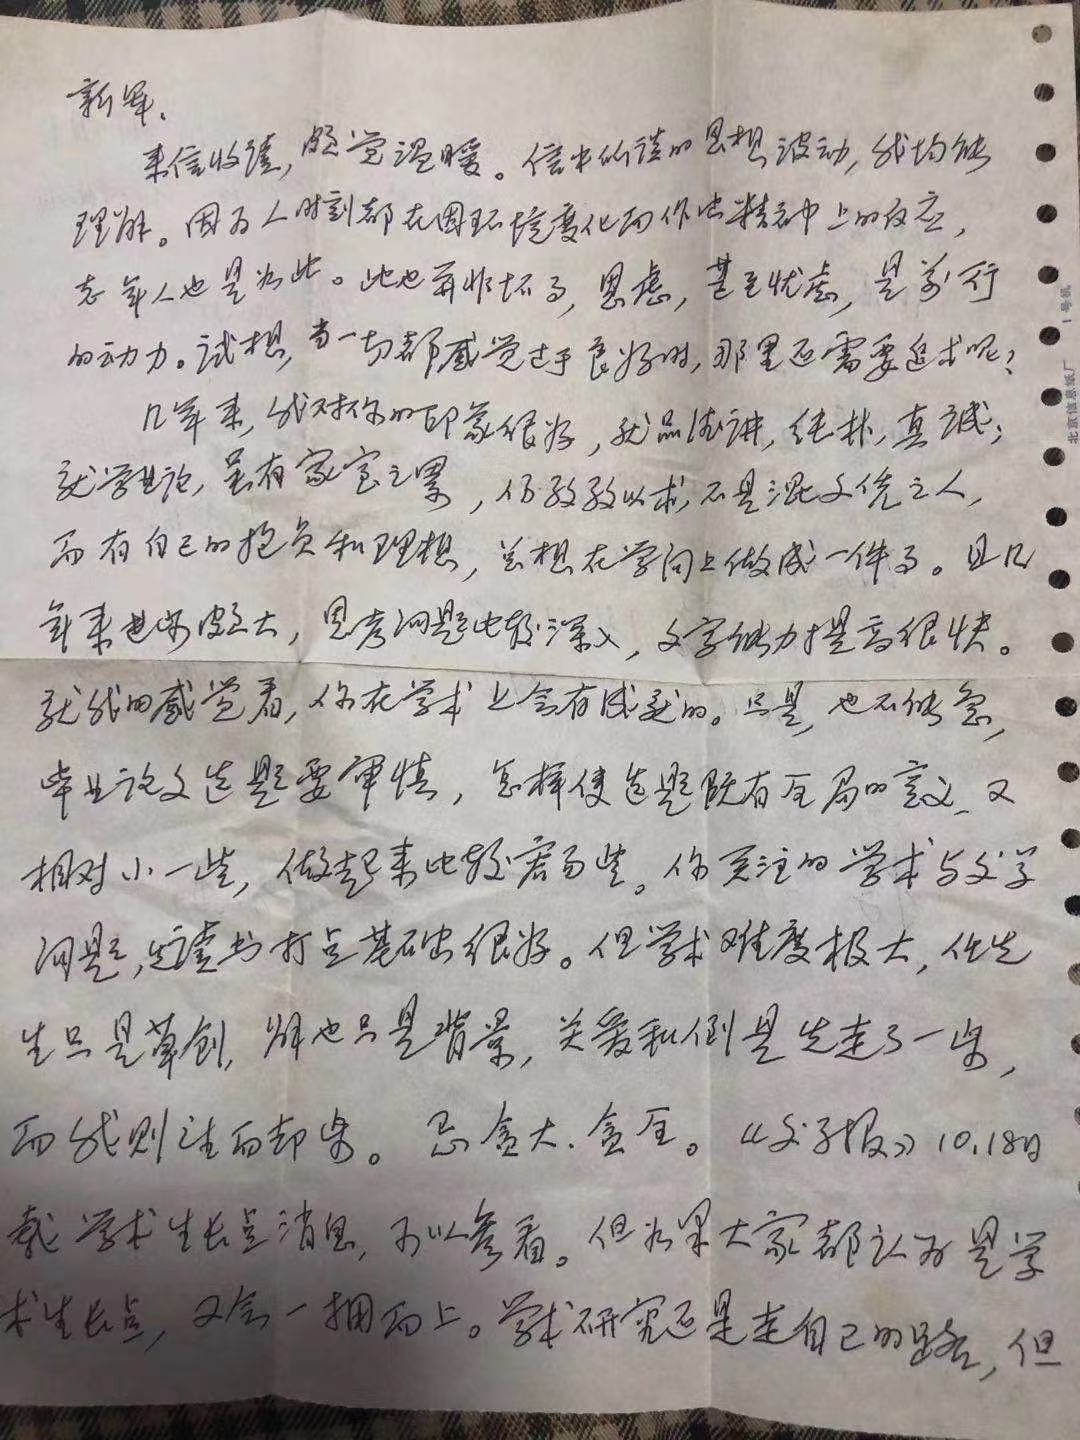 新军、
来信收读，颇觉温暖。信中所谈的思想波动，我均能
理解。因为人时刻都在因环境变化而作出精神上的反应，
老年人也是如此。此也并非坏事，思虑，甚至忧虑，是前行
的动力。试想，当一切都感觉过于良好时，那里还需要追求呢？
几年来，我对你的印象很好，就品德讲，纯朴，真诚；
就学业论，虽有家室之累，仍孜孜以求，不是混文凭之人，
而有自己的抱负和理想，总想在学问上做成一件事。且几
年来进步颇大，思考问题比较深入，文字能力提高很快。
就我的感觉看，你在学术上会有成就的。只是，也不能急，
毕业论文选题要审慎，怎样使选题既有全局的意义，又
相对小一些，做起来比较容易些。你关注的学术与文学
问题，先读书打点基础也很好。但学术难度极大，任先
生只是草创，解也只是背景，关爱和倒是先走了一步，
而我则望而却步。忌贪大、贪全。《文学报》10.18日
载学术生长点消息，可以参看。但如果大家都认为是学
术生长点，又会一拥而上。学术研究还是走自己的路，但
北京信息纸厂 1号机